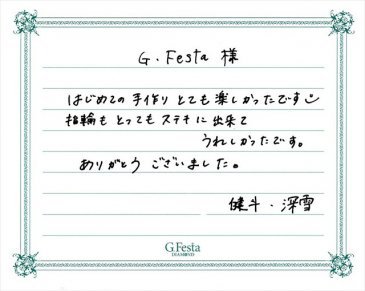 G.Festa 様
はじめての 手作り とても 楽しかったです
指輪も とっても ステキに 出来て
うれしかったです。
ありがとう ございました。
健斗・深雪
G.Festa
DIAMOND